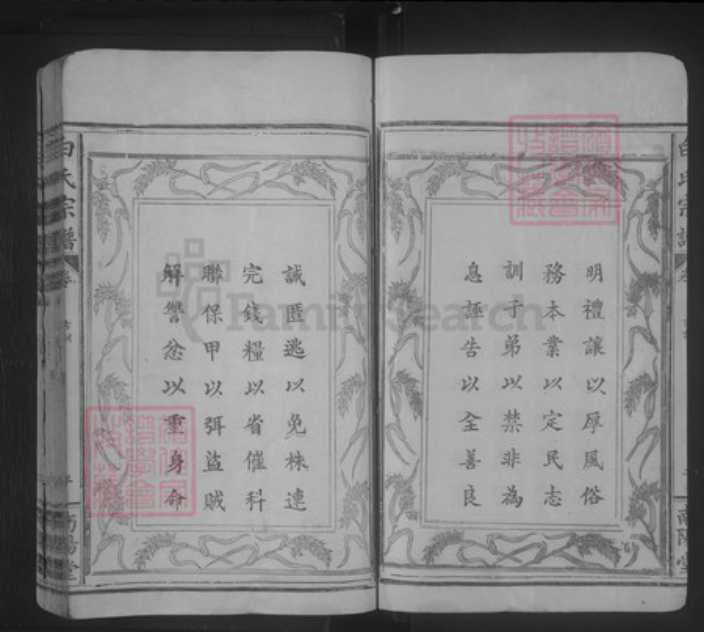 明禮讓以厚風俗
務本業以定民志
訓子弟以禁非為
息誣告以全善良
誡匿逃以免株連
完錢糧以省催科
聯保甲以弭盜賊
解讐忿以重身命
白氏宗譜
南陽堂
白氏宗譜
南陽堂
FamilySearch